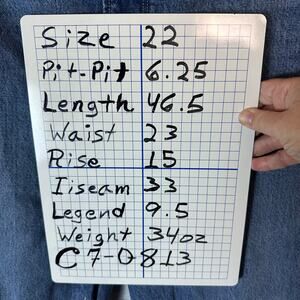 Size 22
Pit-Pit 6.25
Length 46.5
Waist 23
Rise 15
Iiseam 33
Legend 9.5
Weight 34oz
C7-0813